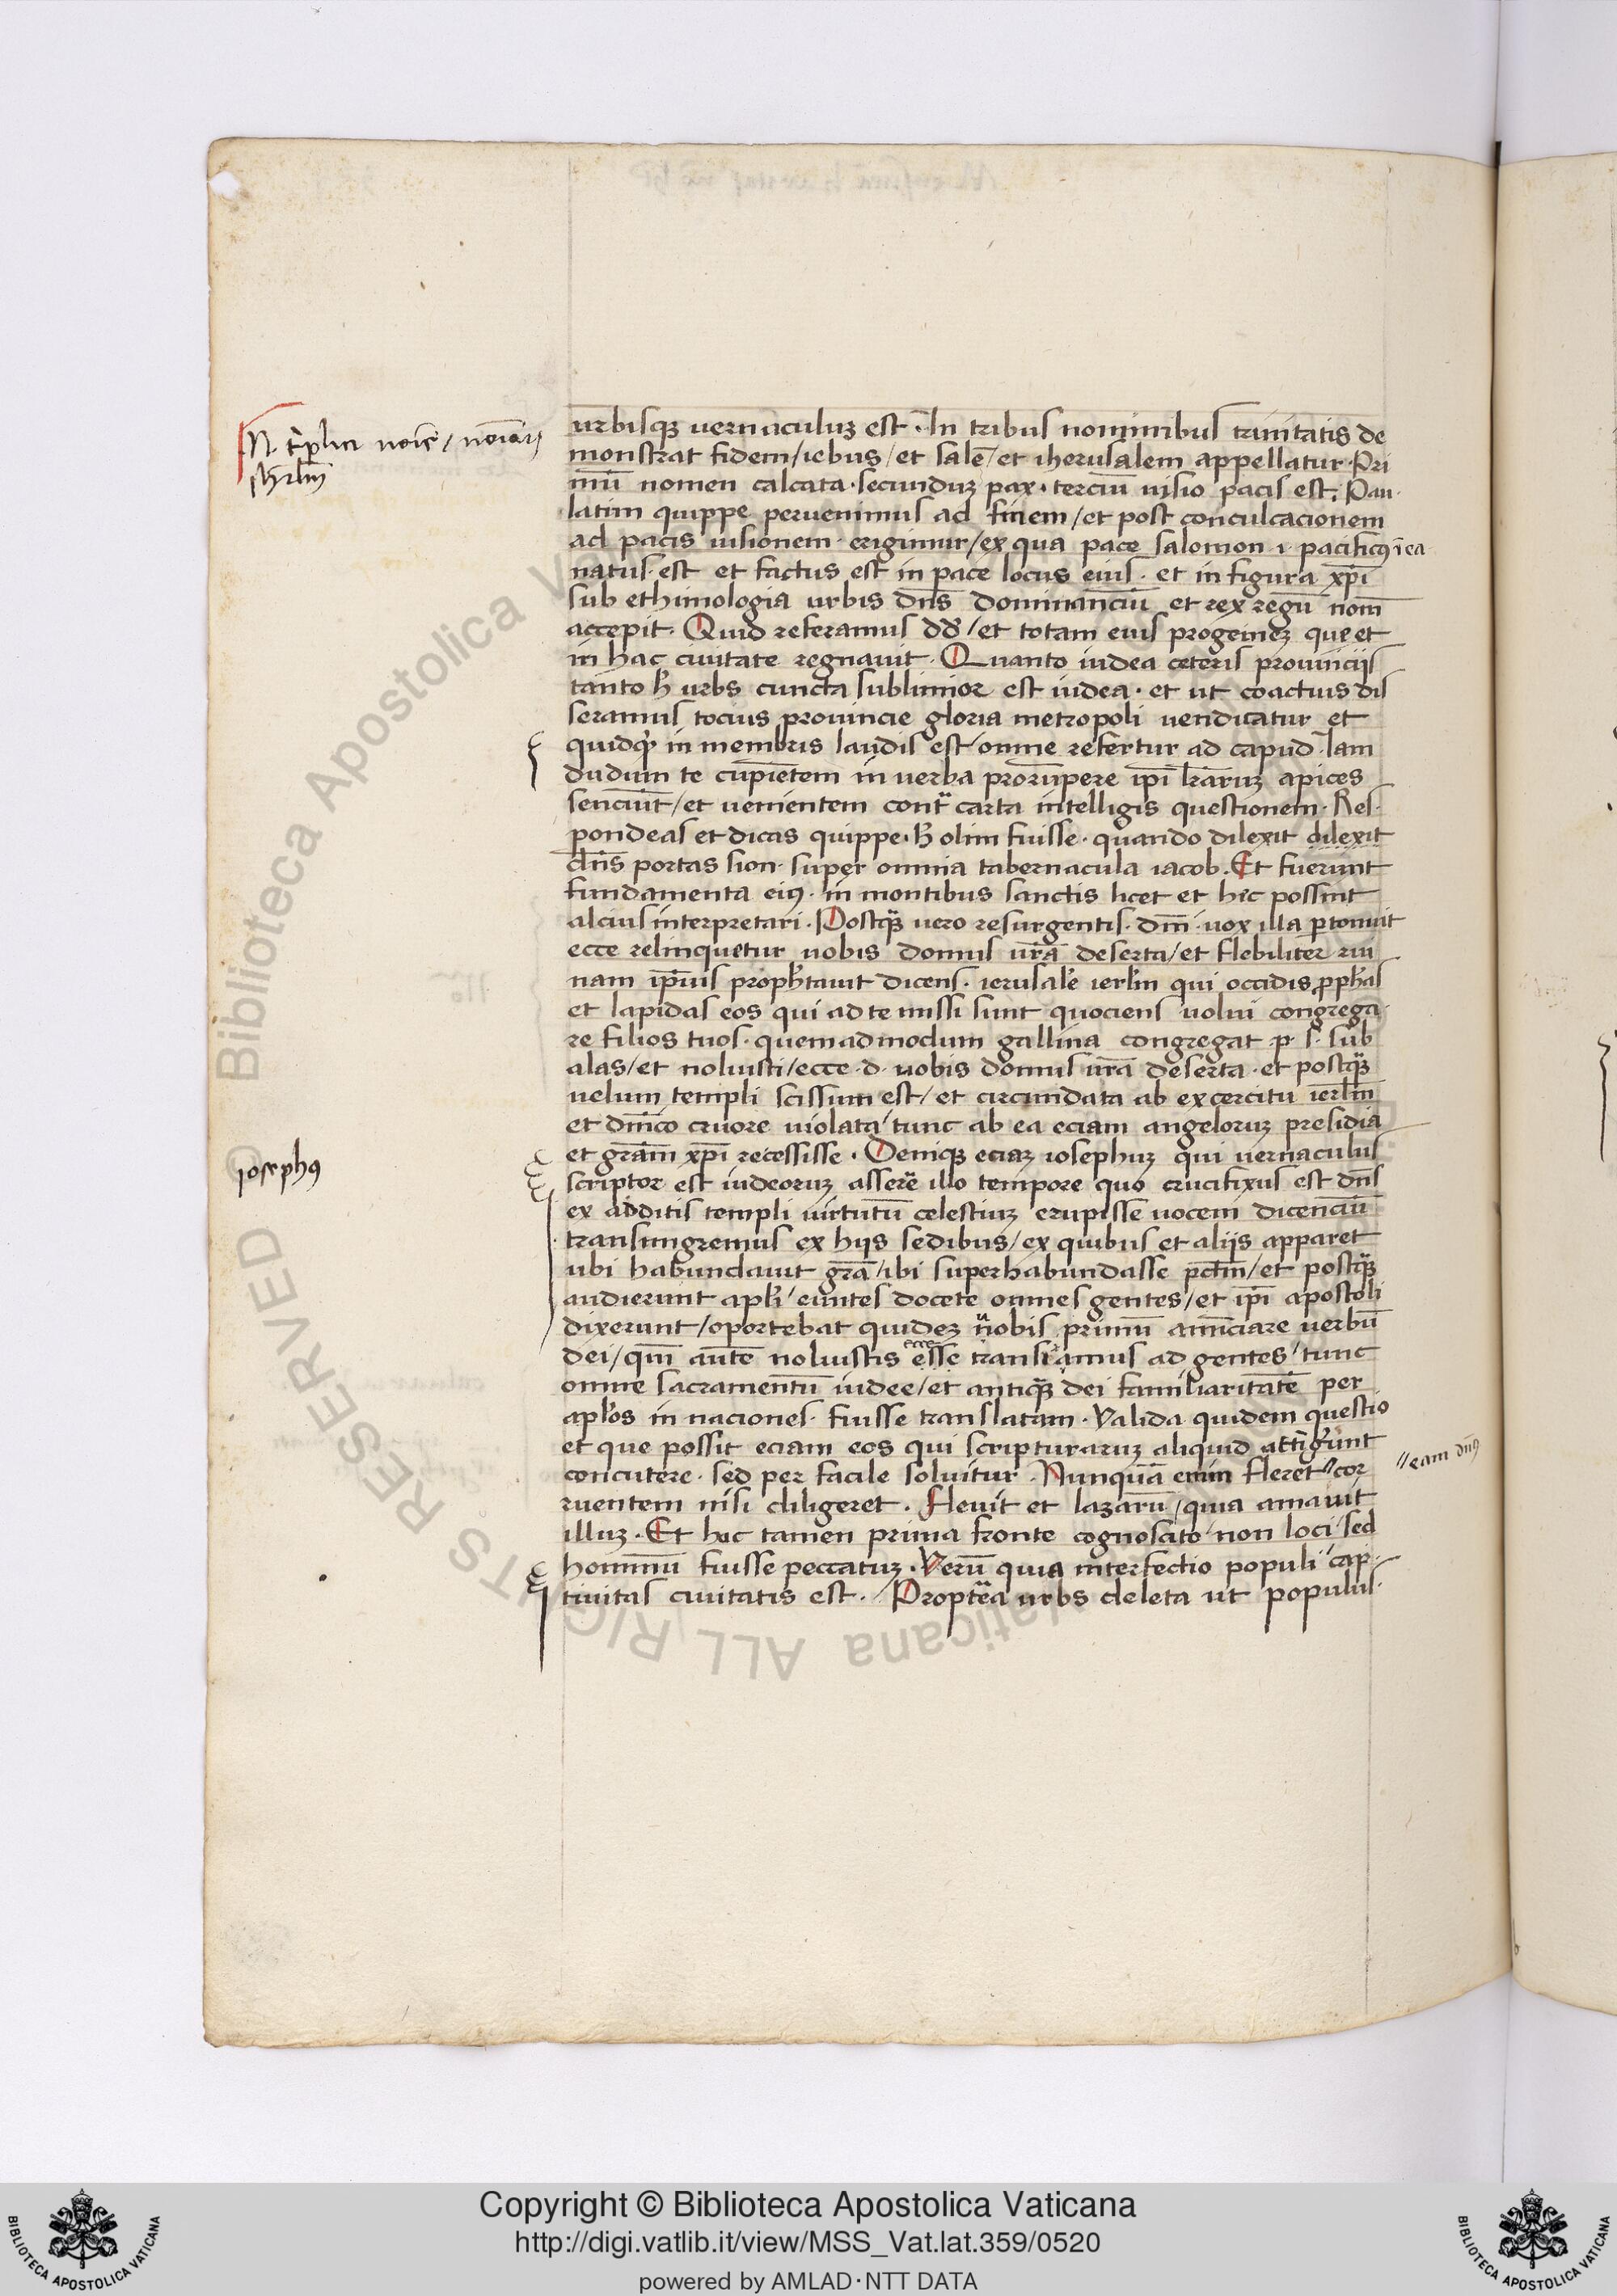 N. tͥplici noīe / noīaꝛi
Jhrlm̄
urbisqꝫ uernaculuꝫ est · In tribus nominibus trinitatis de
monstrat fidem / iebus / et salē / et iherusalem appellatur · Pri
mū nomen calcata · secunduꝫ pax · terciū uisio pacis est; Pau·
latim quippe peruenimus ad finem / et post conculcacionem
ad pacis uisionem · erigimur / ex qua pace salomon ·ı· pacificꝯ ī ea
natus · est et factus est in pace locus eius · et in figura xp̄i
sub ethimologia urbis dn̄s dominanciū et rex regū nom̄
accepit · Quid referamus dd̄ / et totam eius progeineꝫ que et
in hac ciuitate regnauit · Quanto iudea ceteris prouincijs
tanto h̄ urbs cuncta sublimior est iudea · et ut coactius dis
seramus tocius prouincie gloria metropoli uendicatur et
quidqͥd in membris laudis est / omne refertur ad capud · Iam
dudum te cupiētem in uerba prorūpere ip̄i lr̄aruꝫ apices
senciūt / et uenientem contᵃ carta intelligis questionem · Res·
pondeas et dicas quippe · h̄ olim fuisse · quando dilexit dilexit
dn̄s portas sion · super omnia tabernacula iacob · Et fuerunt
fundamenta eiꝯ · in montibus sanctis licet et hec possint
alcius interpretari · Postqᵃꝫ uero resurgentis · dn̄i · uox illa ꝑtonuit
ecce relinquetur uobis domus ur̄a deserta / et flebiliter rui
nam ip̄ius proph̄tauit dicens · ierusalē ierlm̄ qui occidis ꝓph̄as
et lapidas eos qui ad te missi sunt quociens uolui congrega·
re filios tuos · quemadmodum gallina congregat p · s · sub
alas / et noluisti / ecce · d · uobis domus ur̄a deserta · et postqᵃꝫ
uelum templi scissum est / et circundata ab excercitu ierlm̄
et dn̄ico cruore uiolata / tunc ab ea eciam angeloruꝫ presidia
et gr̄am xp̄i recessisse · Deniqꝫ eciaꝫ iosephuꝫ qui uernaculus
iosephꝯ
scriptor est iudeoruꝫ asserē illo tempore quo crucifixus est dn̄s
ex abditis templi uirtutū celestiuꝫ erupisse uocem dicenciū
transimgremus ex hijs sedibus / ex quibus et alijs apparet
ubi habundauit gr̄a / ibi superhabundasse pc̄tm̄ / et postqᵃꝫ
audierunt apl̄i / euntes docete omnes gentes / et ip̄i apostoli
dixerunt / oportebat quideꝫ uobis primū anūciare uerbū
dei / qm̄ autē noluistis esse ecce transeamus ad gentes / tunc
omne sacramentū iudee / et antiqᵃꝫ dei familiaritatē per
apl̄os in naciones · fuisse translatam · Valida quidem questio
et que possit eciam eos qui scripturaruꝫ aliquid attigerunt
concutere · sed per facile soluitur · Nunquā enim fleret // cor
// eam dn̄ꝯ
ruentem nisi diligeret · Fleuit et lazarū / quia amauit
illuꝫ · Et hoc tamen prima fronte cognoscito / non loci / sed
hominū fuisse peccatuꝫ · Verū quia interfectio populi / cap·
tiuitas ciuitatis est · Proptᵉa urbs deleta ut populus·
© Biblioteca Apostolica Vaticana ALL RIGHTS RESERVED
Copyright © Biblioteca Apostolica Vaticana
http://digi.vatlib.it/view/MSS_Vat.lat.359/0520
powered by AMLAD·NTT DATA
BIBLIOTECA APOSTOLICA VATICANA
BIBLIOTECA APOSTOLICA VATICANA